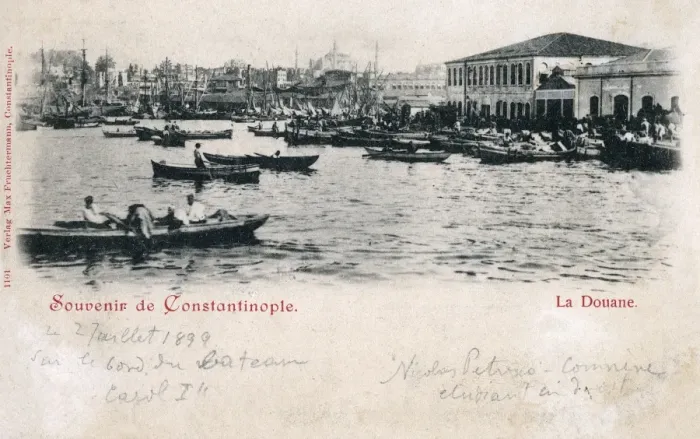 1101 Verlag Max Fruchtermann, Constantinople.
Souvenir de Constantinople.
La Douane.
le 2 Juillet 1899
Sur le bord du bateau
"Carol I"
Nicolas Petresco - Comnene
etudiant en droit